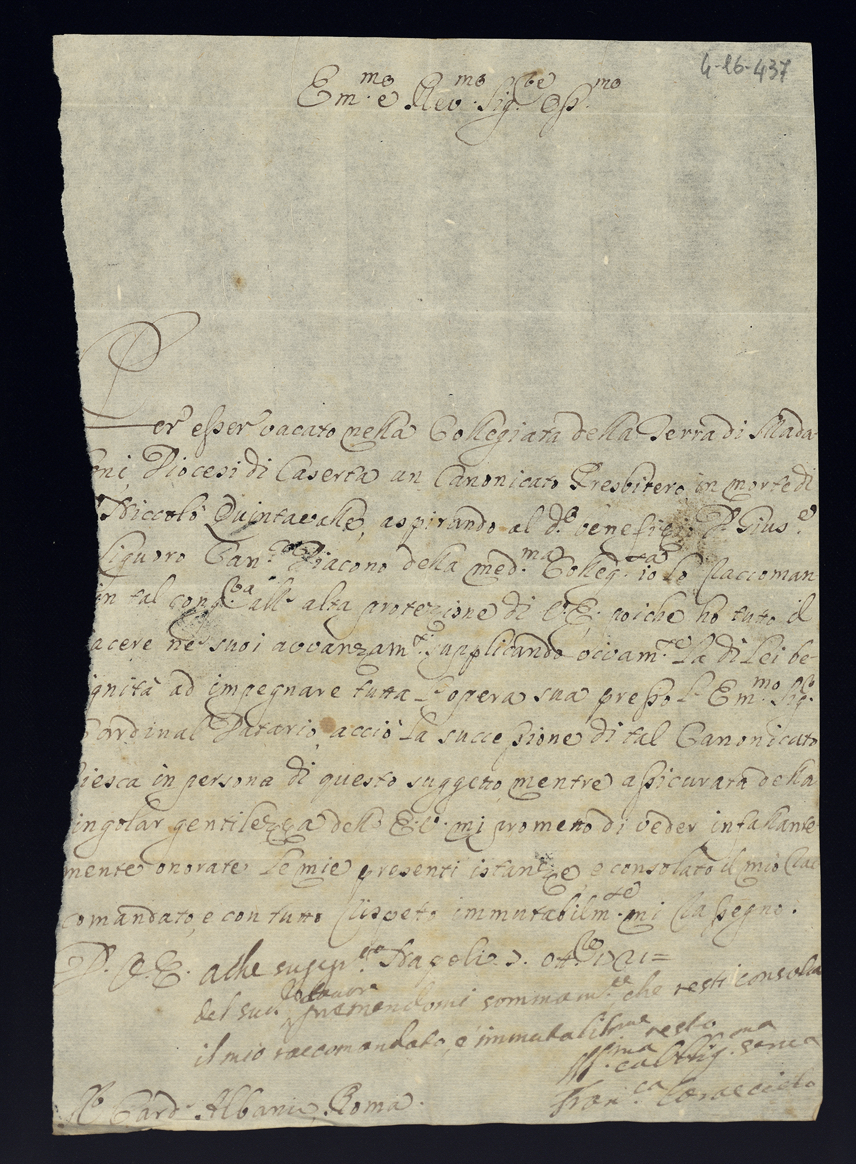 4-16-437
Em.mo e Rev.mo Sig.re Oss.mo
Per esser vacato nella Collegiata della Terra di Mada
loni Diocesi di Caserta un Canonicato Presbitero in morte di
Niccolò Quintavalle, aspirando al d.o beneficio D. Gius.e
Liguoro Can.co Diacono della med.ma Colleg.ta io lo Raccoman
in tal all' alta protezione di V.E. poiche ho tutto il
acere ne suoi avvanzam.ti supplicando vivam.te la di Lei be-
ignità ad impegnare tutta l'opera sua presso l'Em.mo Sig.
Cardinal Datario, acciò la successione di tal Canonicato
riesca in persona di questo suggetto, mentre assicurata della
singolar gentilezza dell' E.V. mi prometto di veder infallante
mente onorate le mie presenti istanze, e consolato il mio Rac
comandato, e con tutto Rispeto immutabilm.te mi Rassegno.
D. V. E. alla Napoli 7. 1721=
del suo favore premendomi sommam.te che resti consola
il mio raccomandato, e immutabilme resto
Fran.ca Caracciolo
Card. Albani Roma.